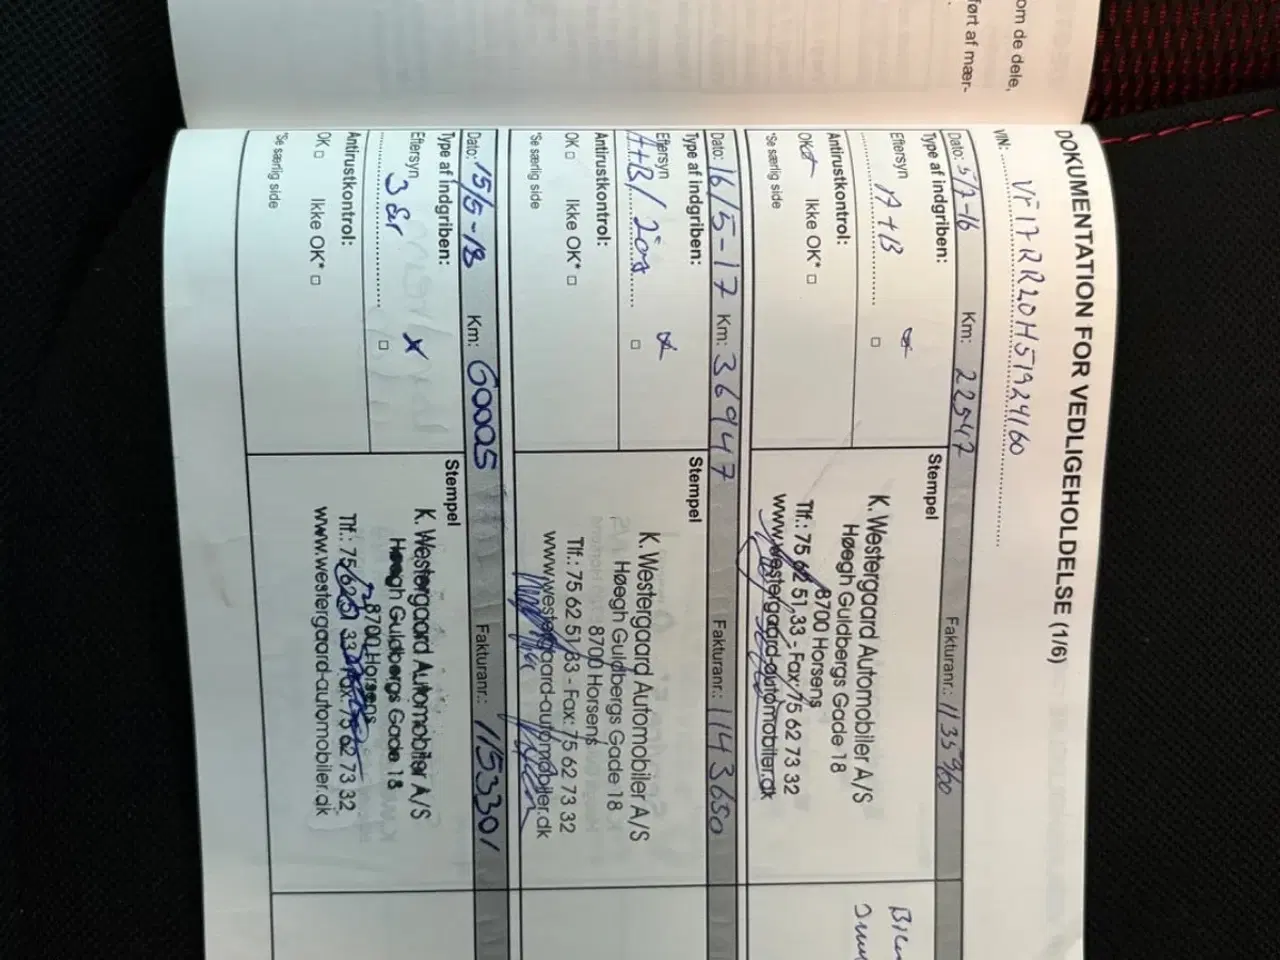 om de dele,
ført af mær-
DOKUMENTATION FOR VEDLIGEHOLDELSE (1/6)
VIN: VF17RR20H51924160
Dato: 5/7-16 Km: 22547 Fakturanr.: 1135960
Type af indgriben:
Stempel
Eftersyn
A+B
Antirustkontrol:
OK Ikke OK*
*Se særlig side
K. Westergaard Automobiler A/S
Høegh Guldbergs Gade 18
8700 Horsens
Tlf.: 75 62 51 33 - Fax: 75 62 73 32
www.westergaard-automobiler.dk
Dato: 16/5-17 Km: 36947 Fakturanr.: 1143650
Type af indgriben:
Stempel
Eftersyn
A+B/
Antirustkontrol:
OK Ikke OK*
*Se særlig side
K. Westergaard Automobiler A/S
Høegh Guldbergs Gade 18
8700 Horsens
Tlf.: 75 62 51 33 - Fax: 75 62 73 32
www.westergaard-automobiler.dk
Dato: 15/5-18 Km: 60005 Fakturanr.: 1153301
Type af indgriben:
Stempel
Eftersyn
3 år
X
Antirustkontrol:
OK Ikke OK*
*Se særlig side
K. Westergaard Automobiler A/S
Høegh Guldbergs Gade 18
8700 Horsens
Tlf.: 75 62 51 33 - Fax: 75 62 73 32
www.westergaard-automobiler.dk